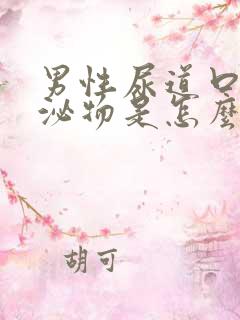 男性尿道口
泌物是怎麼
胡可